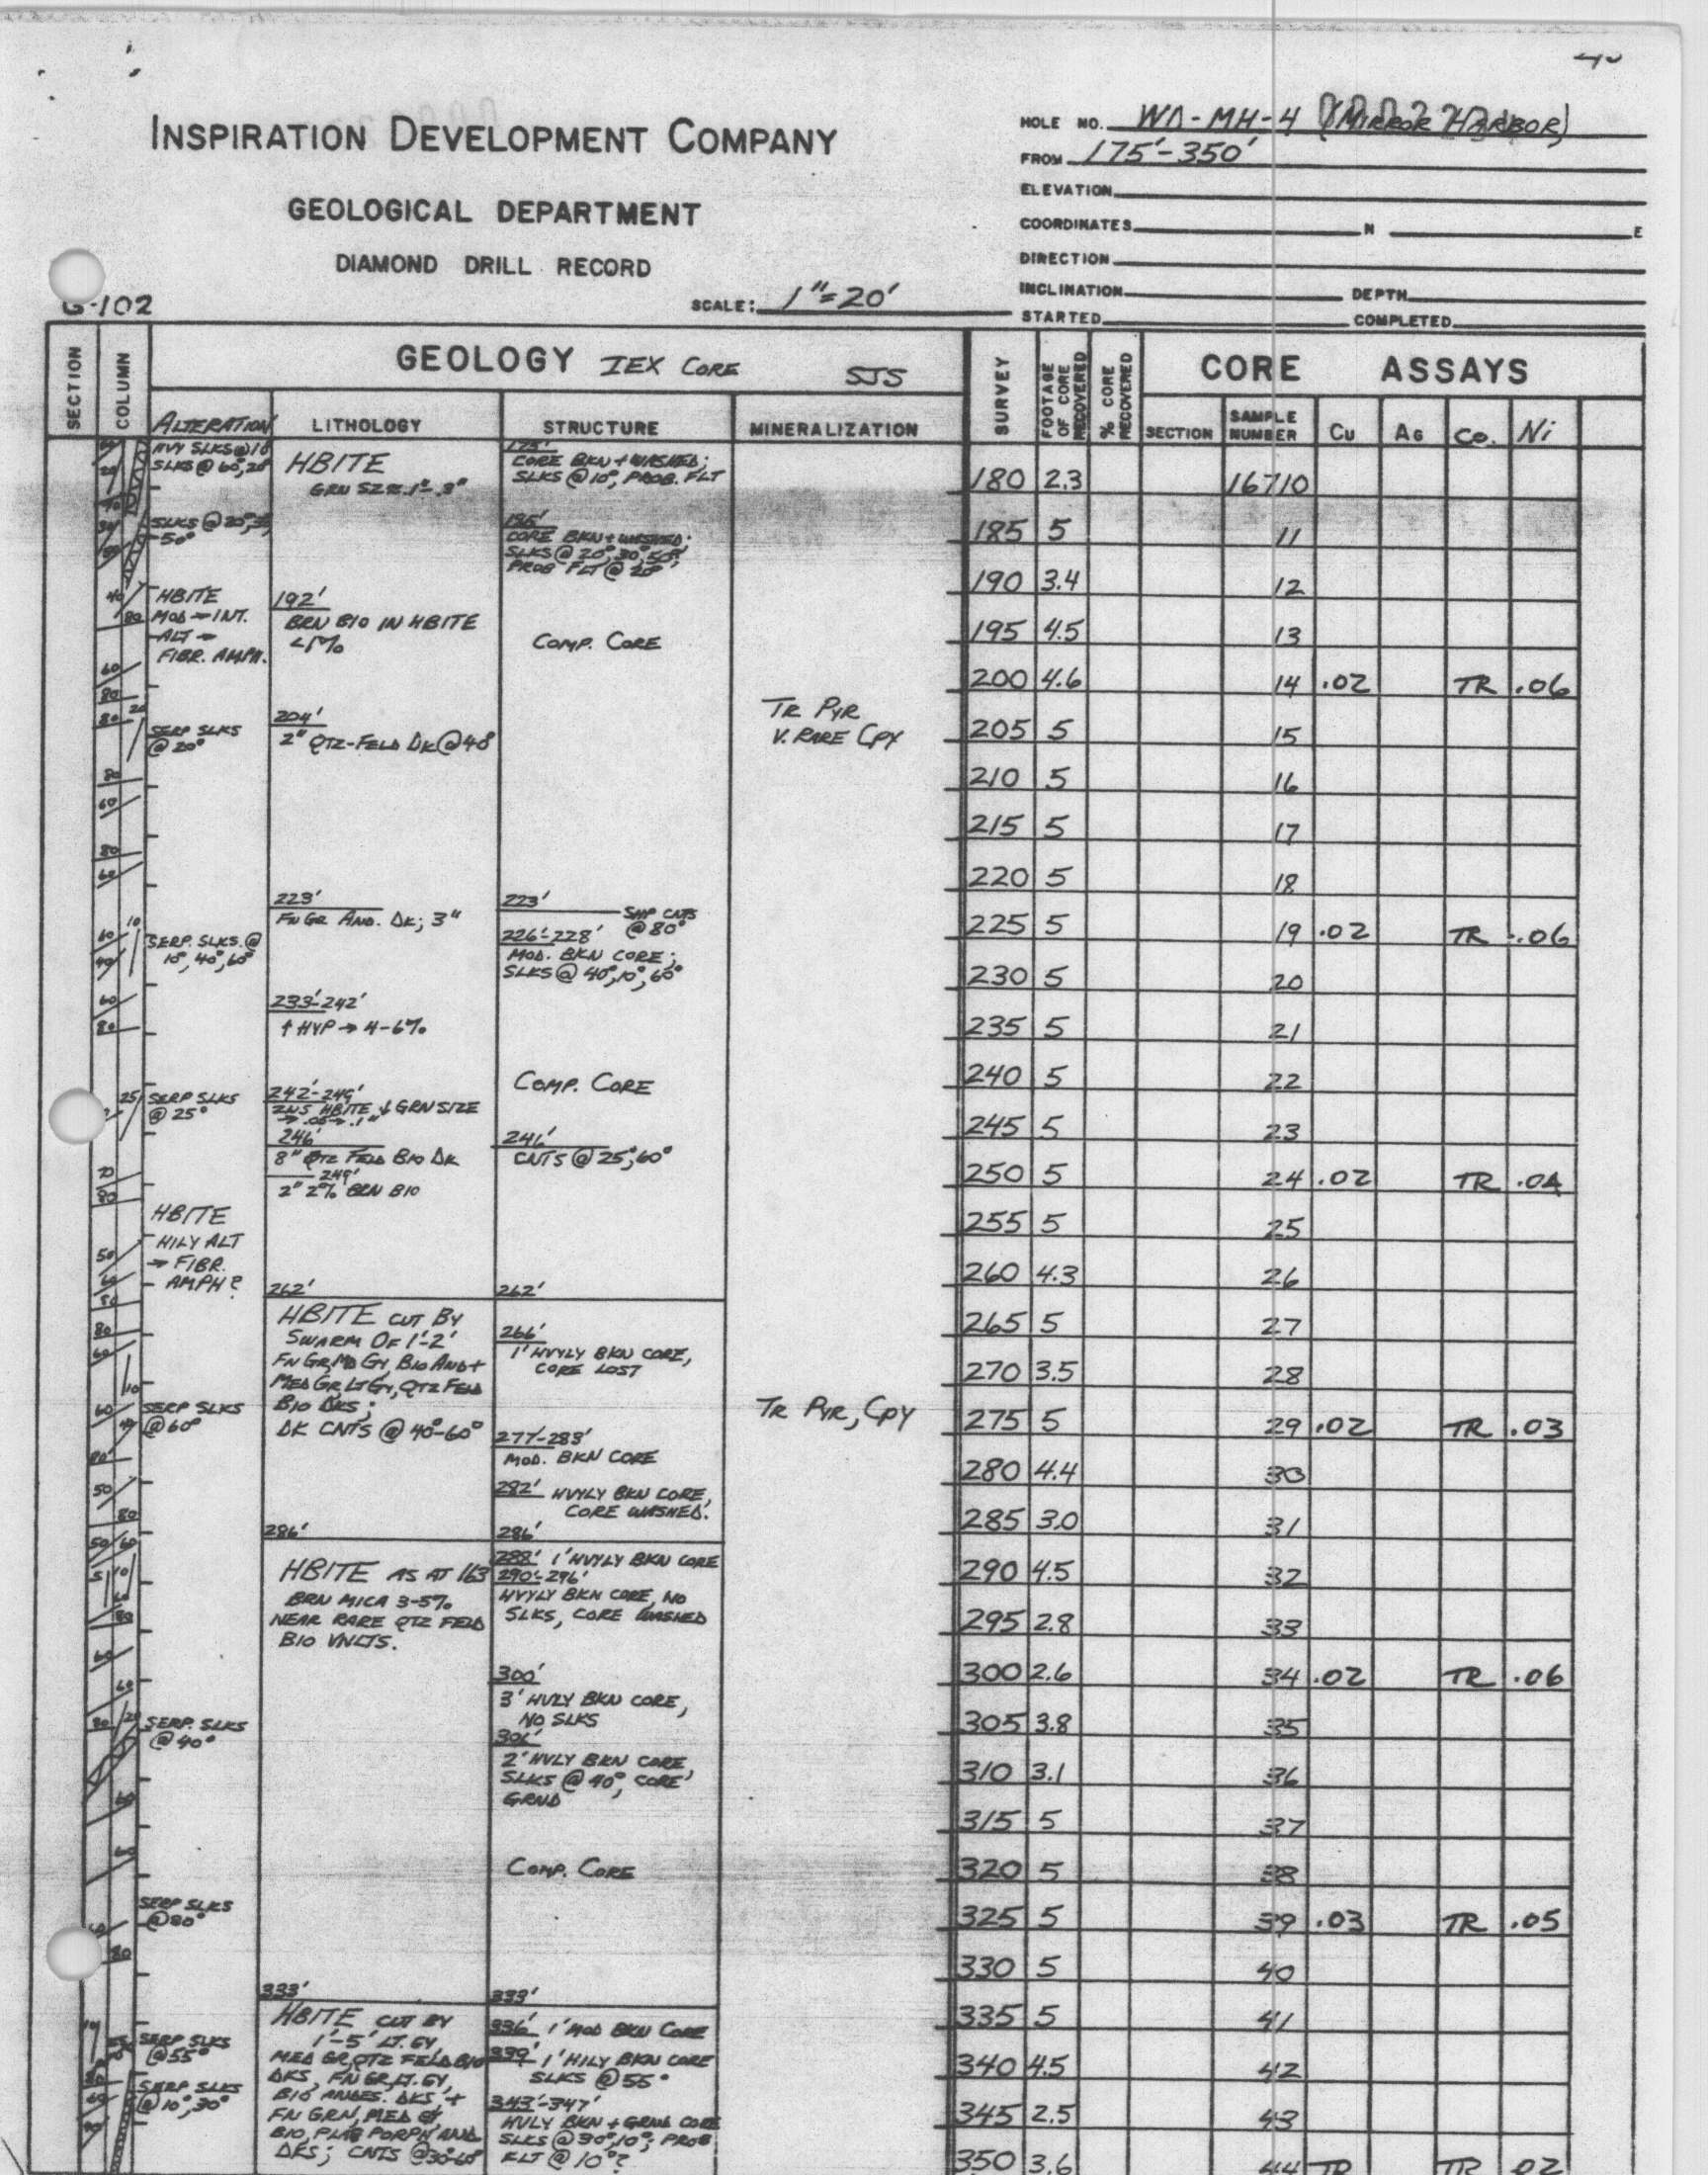 INSPIRATION DEVELOPMENT COMPANY
GEOLOGICAL DEPARTMENT
DIAMOND DRILL RECORD
G-102
SCALE: 1"=20'
HOLE NO. WA-MH-4 (MIRROR HARBOR)
FROM 175'-350'
ELEVATION
COORDINATES N E
DIRECTION
INCLINATION DEPTH
STARTED COMPLETED
SECTION
COLUMN
GEOLOGY IEX CORE SJS
ALTERATION LITHOLOGY STRUCTURE MINERALIZATION
SURVEY
FOOTAGE OF CORE RECOVERED
% CORE RECOVERED
CORE ASSAYS
SECTION SAMPLE NUMBER Cu AG Co. Ni
SLKS @ 60°, 20°
SLKS @ 20°, 30°
50°
HBITE
MOD → INT.
ALT →
FIBR. AMPH.
SERP SLKS
@ 20°
SERP. SLKS. @
10°, 40°, 60°
SERP SLKS
@ 25°
HBITE
HILY ALT
→ FIBR.
AMPH?
SERP SLKS
@ 60°
SERP. SLKS
@ 40°
SERP SLKS
@ 80°
SERP SLKS
@ 55°
SERP SLKS
@ 10°, 30°
HBITE
GRN SZ ≈ .1"-.3"
192'
BRN BIO IN HBITE
<1%
204'
2" QTZ-FELD DK @ 48
223'
FN GR AND. DK; 3"
233'-242'
↑ HYP → 4-6%
242'-249'
HBITE ↓ GRN SIZE
→ .05 → .1"
246'
8" QTZ FELD BIO DK
249'
2" 2% BRN BIO
262'
HBITE CUT BY
SWARM OF 1'-2'
FN GR, MD GY, BIO AND +
MED GR, LT GY, QTZ FELD
BIO DKS;
DK CNTS @ 40°-60°
286'
HBITE AS AT 163
BRN MICA 3-5%
NEAR RARE QTZ FELD
BIO VNLTS.
333'
HBITE CUT BY
1'-5' LT. GY,
MED GR, QTZ FELD BIO
DKS, FN GR, LT. GY,
BIO ANDES. DKS, +
FN GRN, MED GY,
BIO, PLAG PORPH AND
DKS; CNTS @ 30°-60°
175'
CORE BKN + WASHED;
SLKS @ 10°, PROB. FLT
185'
CORE BKN + WASHED;
SLKS @ 20°, 30°, 50°;
PROB FLT @ 20°
COMP. CORE
223'
SHP CNTS
@ 80°
226'-228'
MOD. BKN CORE;
SLKS @ 40°, 10°, 60°
COMP. CORE
246'
CNTS @ 25°, 60°
262'
266'
1' HVYLY BKN CORE,
CORE LOST
277'-283'
MOD. BKN CORE
282' HVYLY BKN CORE,
CORE WASHED.
286'
288' 1' HVYLY BKN CORE
290'-296'
HVYLY BKN CORE, NO
SLKS, CORE WASHED
300'
3' HVLY BKN CORE,
NO SLKS
306'
2' HVLY BKN CORE
SLKS @ 40°, CORE
GRND
COMP. CORE
333'
336' 1' MOD BKN CORE
339' 1' HILY BKN CORE
SLKS @ 55°
343'-347'
HVLY BKN + GRND CORE
SLKS @ 30°, 10°; PROB
FLT @ 10°?
TR PYR
V. RARE CPY
TR PYR, CPY
180 2.3 16710
185 5 11
190 3.4 12
195 4.5 13
200 4.6 14 .02 TR .06
205 5 15
210 5 16
215 5 17
220 5 18
225 5 19 .02 TR .06
230 5 20
235 5 21
240 5 22
245 5 23
250 5 24 .02 TR .04
255 5 25
260 4.3 26
265 5 27
270 3.5 28
275 5 29 .02 TR .03
280 4.4 30
285 3.0 31
290 4.5 32
295 2.8 33
300 2.6 34 .02 TR .06
305 3.8 35
310 3.1 36
315 5 37
320 5 38
325 5 39 .03 TR .05
330 5 40
335 5 41
340 4.5 42
345 2.5 43
350 3.6 44 TR TR .02